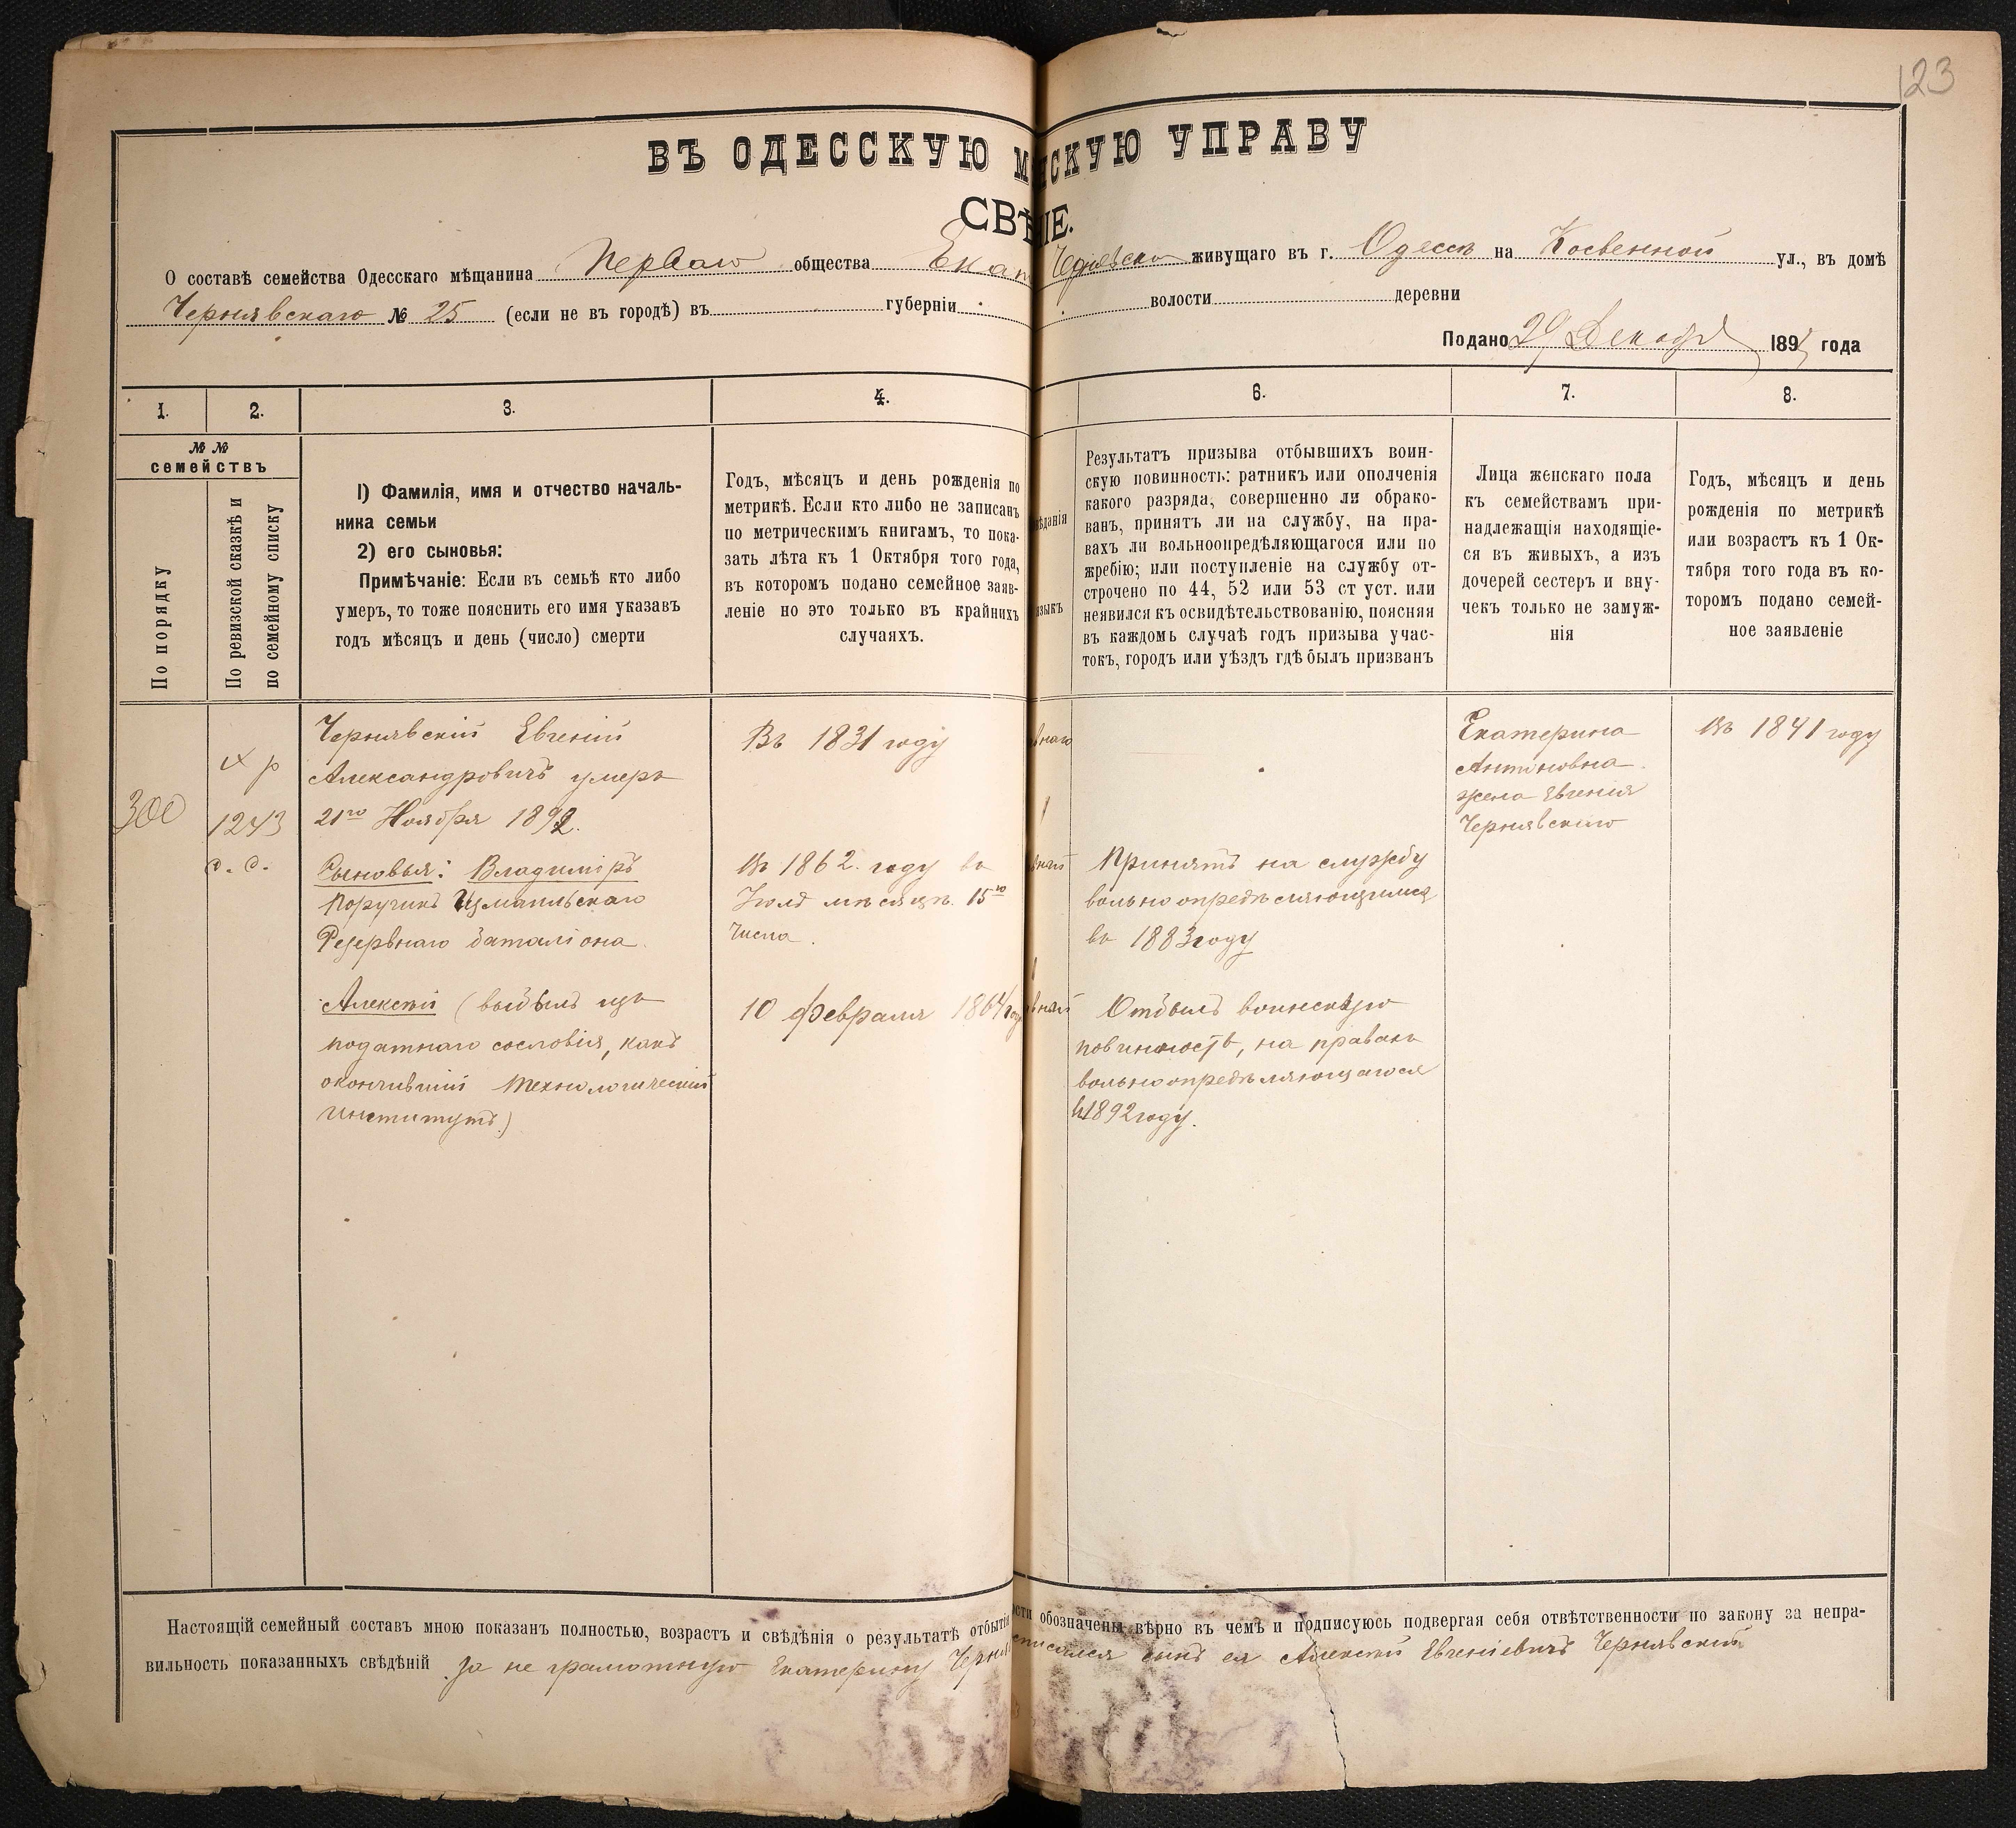 123
ВЪ ОДЕССКУЮ М СКУЮ УПРАВУ
СВѢ НІЕ.
О составѣ семейства Одесскаго мѣщанина Перваго общества Екат Чернявско живущаго въ г. Одессѣ на Косвенной ул., въ домѣ
Чернявскаго № 25 (если не въ городѣ) въ губерніи волости деревни
Подано 29 Декабр 189 года
1. 2. 3. 4. 6. 7. 8.
№ №
семействъ
По порядку
По ревизской сказкѣ и
по семейному списку
1) Фамилія, имя и отчество началь-
ника семьи
2) его сыновья:
Примѣчаніе: Если въ семьѣ кто либо
умеръ, то тоже пояснить его имя указавъ
годъ мѣсяцъ и день (число) смерти
Годъ, мѣсяцъ и день рожденія по
метрикѣ. Если кто либо не записанъ
по метрическимъ книгамъ, то пока-
зать лѣта къ 1 Октября того года,
въ которомъ подано семейное заяв-
леніе но это только въ крайнихъ
случаяхъ.
ѣданія
языкъ
Результатъ призыва отбывшихъ воин-
скую повинность: ратникъ или ополченія
какого разряда, совершенно ли обрако-
ванъ, принятъ ли на службу, на пра-
вахъ ли вольноопредѣляющагося или по
жребію; или поступленіе на службу от-
строчено по 44, 52 или 53 ст уст. или
неявился къ освидѣтельствованію, поясняя
въ каждомъ случаѣ годъ призыва учас-
токъ, городъ или уѣздъ гдѣ былъ призванъ
Лица женскаго пола
къ семействамъ при-
надлежащія находящіе-
ся въ живыхъ, а изъ
дочерей сестеръ и вну-
чекъ только не замуж-
нія
Годъ, мѣсяцъ и день
рожденія по метрикѣ
или возрастъ къ 1 Ок-
тября того года въ ко-
торомъ подано семей-
ное заявленіе
300
х р
1243
с. с.
Чернявскій Евгеній
Александровичъ умеръ
21го Ноября 1892.
Сыновья: Владиміръ
Поручикъ Измаильскаго
Резервнаго баталіона
Алексѣй (выбылъ изъ
податнаго сословія, какъ
окончившій Технологическій
институтъ)
Въ 1831 году
Въ 1862 году въ
Іюлѣ мѣсяцѣ 15го
числа.
10 февраля 1864 год
внаго
вный
вный
Принятъ на службу
вольноопредѣляющимся
въ 1883 году
Отбылъ воинскую
повинность, на правахъ
вольноопредѣляющагося
въ 1892 году.
Екатерина
Антоновна
жена Евгенія
Чернявскаго
Въ 1841 году
Настоящій семейный составъ мною показанъ полностью, возрастъ и свѣдѣнія о результатѣ отбытія ости обозначены вѣрно въ чемъ и подписуюсь подвергая себя отвѣтственности по закону за непра-
вильность показанныхъ свѣдѣній За не грамотную Екатерину Черняв списался сынъ ея Алексѣй Евгеніевичъ Чернявскій